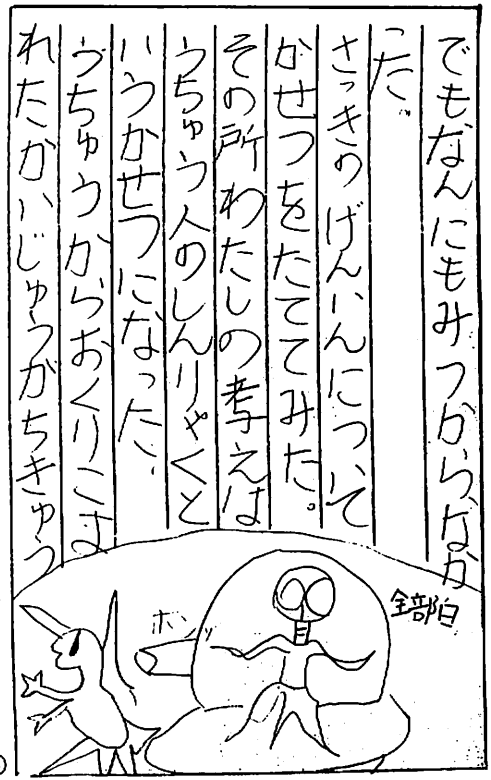 でもなんにもみつからなか
った。
さっきのげんいんについて
かせつをたててみた。
その所わたしの考えは
うちゅう人のしんりゃくと
いうかせつになった、
うちゅうからおくりこま
れたかいじゅうがちきゅう
全部白